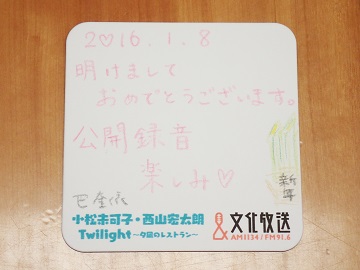 2♡16.1.8
明けまして
おめでとうございます。
公開録音
楽しみ♡
新年
小松未可子・西山宏太朗
Twilight～夕凪のレストラン～
文化放送
AM1134/FM91.6